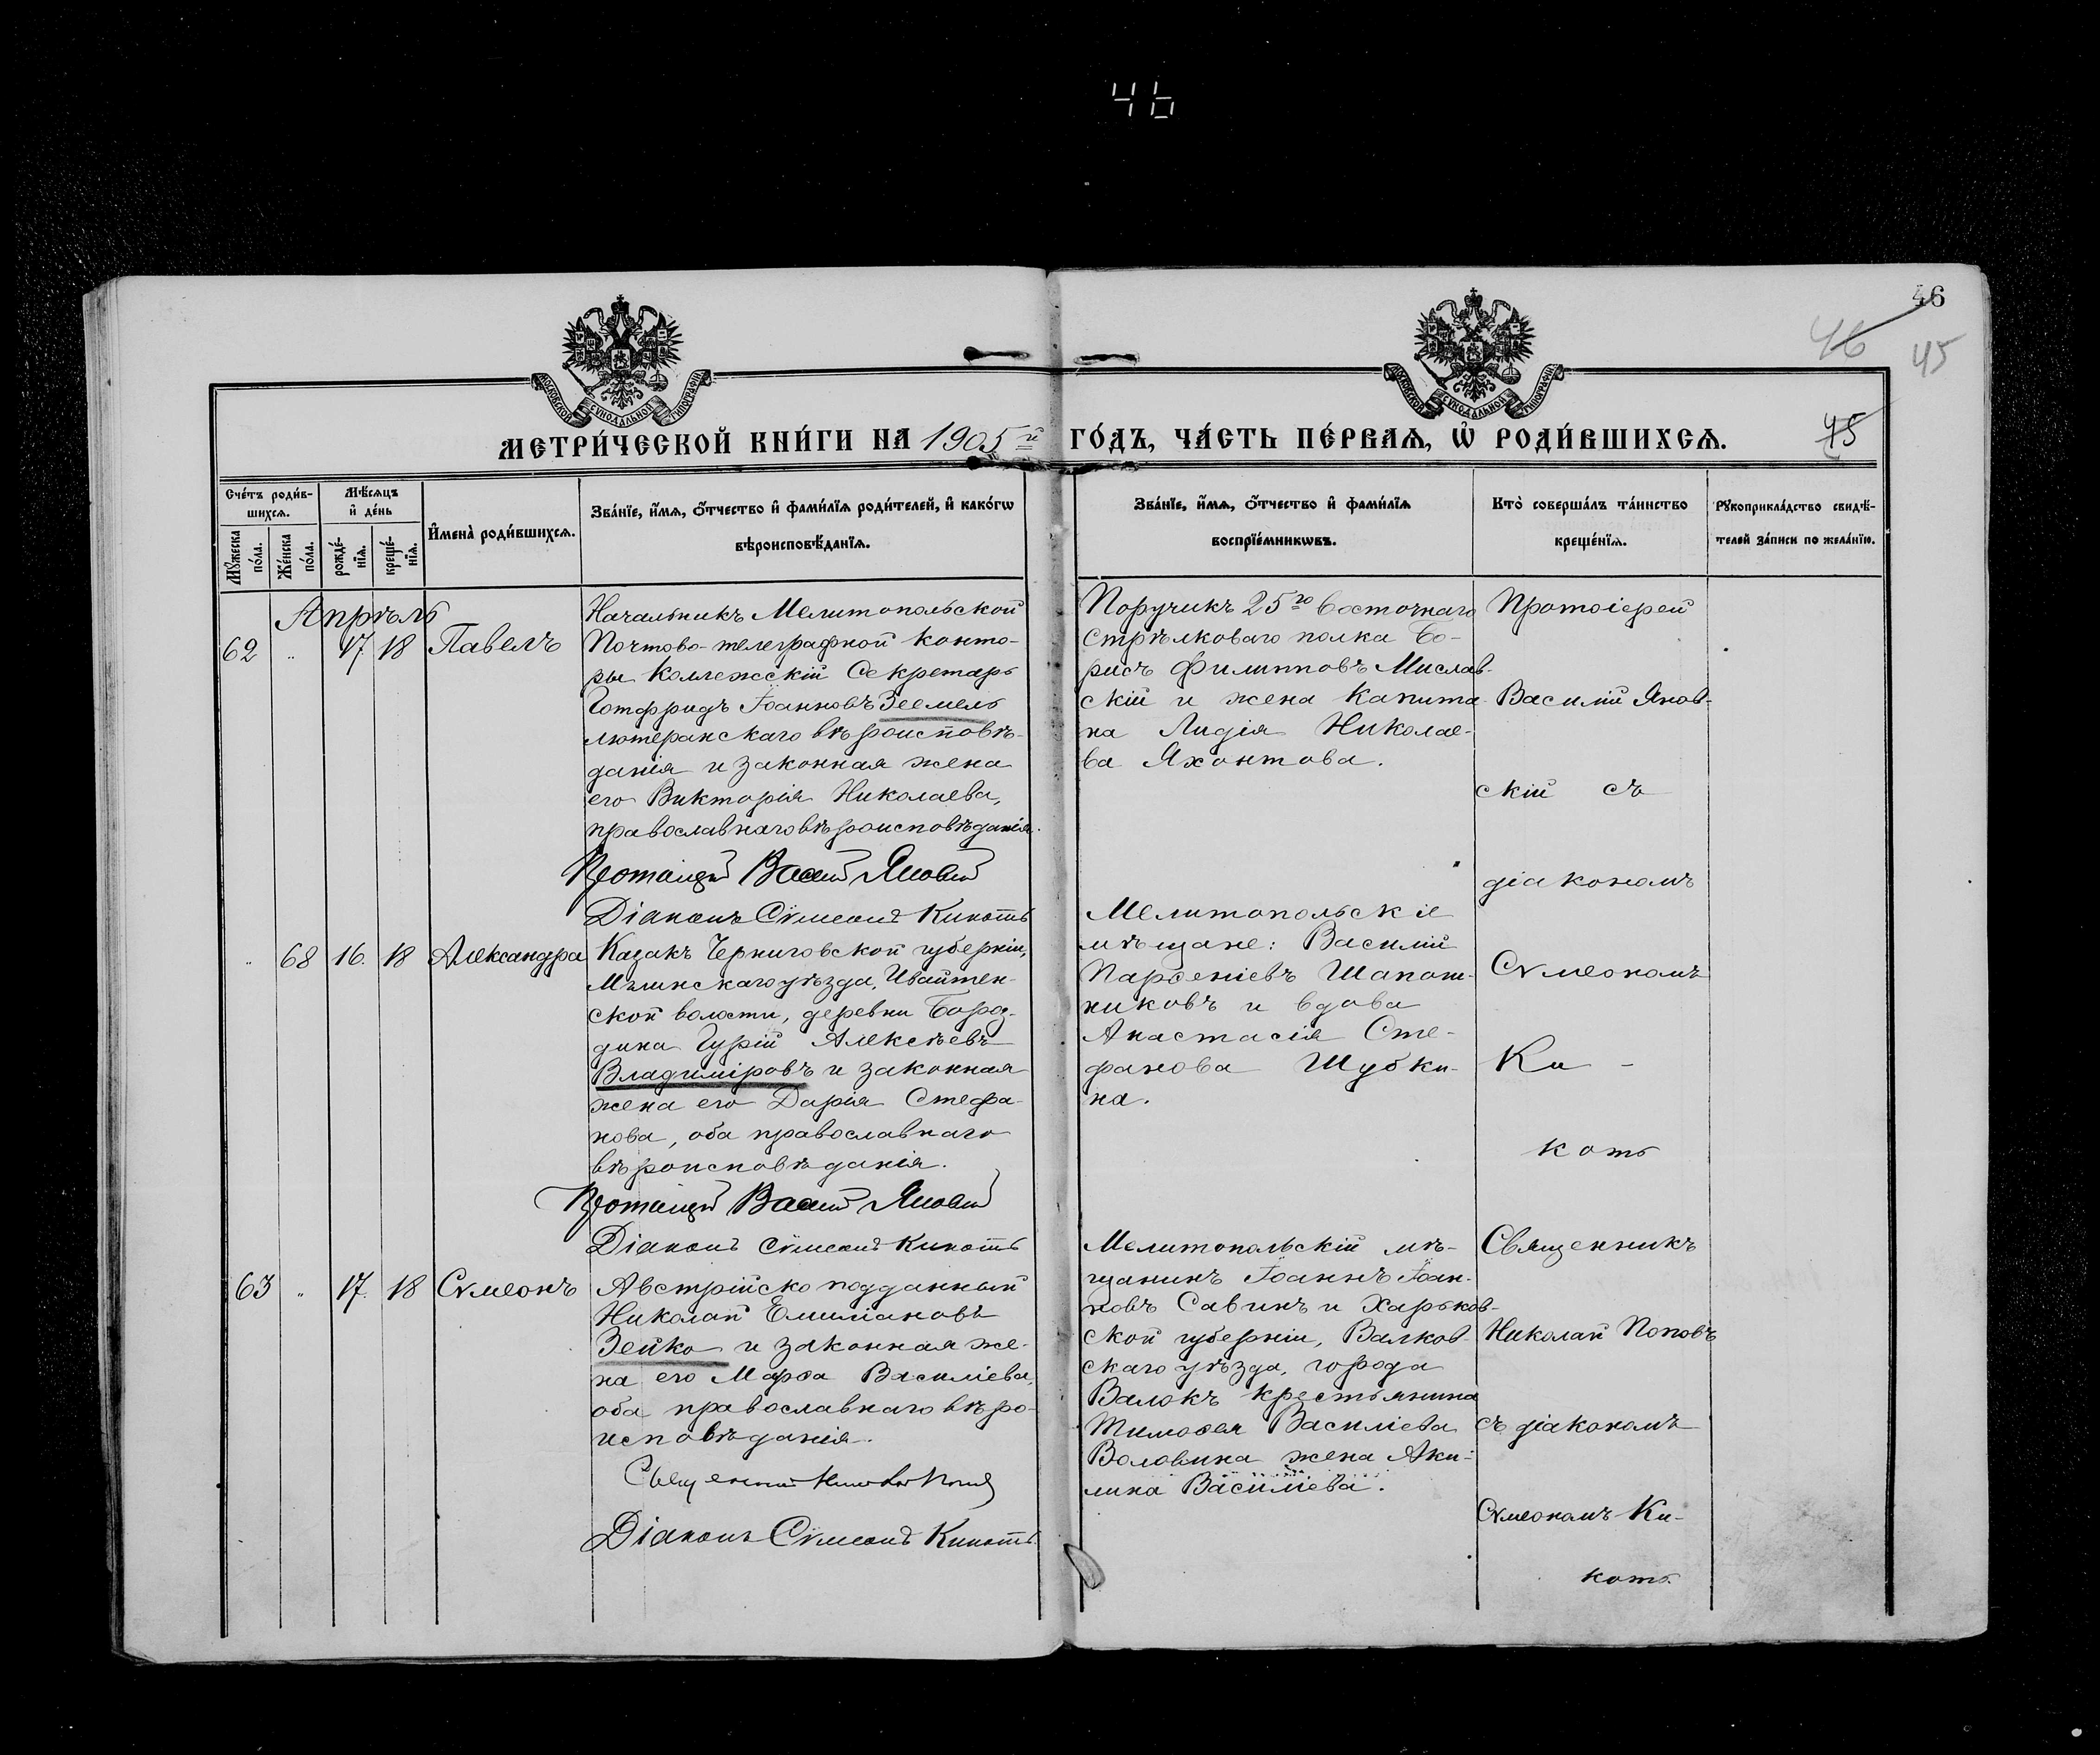 46
46
46
45
45
МОСКОВСКОЙ СѴНОДАЛЬНОЙ ТИПОГРАФІИ
МОСКОВСКОЙ СѴНОДАЛЬНОЙ ТИПОГРАФІИ
МЕТРИ́ЧЕСКОЙ КНИ́ГИ НА 1905й ГО́ДЪ, ЧА́СТЬ ПЕ́РВАѦ, Ѡ҆ РОДИ́ВШИХСѦ.
Сче́тъ роди́в-
шихсѧ.
Мꙋ́жеска по́ла.
Же́нска по́ла.
Мѣ́сѧцъ
и҆ де́нь
рожде́-
нїѧ.
креще́-
нїѧ.
И҆мена̀ роди́вшихсѧ.
Зва́нїе, и҆́мѧ, ѻ҆́тчество и҆ фами́лїѧ роди́телей, и҆ како́гѡ
вѣроисповѣ́данїѧ.
Зва́нїе, и҆́мѧ, ѻ҆́тчество и҆ фами́лїѧ
воспрїе́мникѡвъ.
Кто̀ соверша́лъ та́инство
креще́нїѧ.
Рꙋкоприкла́дство свидѣ́-
телей за́писи по жела́нїю.
Апрѣль
62 " 17 18 Павелъ
Начальникъ Мелитопольской
Почтово-телеграфной конто-
ры Коллежскій Секретарь
Готфридъ Іоанновъ Зеемель
лютеранскаго вѣроисповѣ-
данія и законная жена
его Викторія Николаева,
православнаго вѣроисповѣданія.
Протоіерей Василій Яновскій
Діаконъ Сѵмеонъ Кикоть
Поручикъ 25го Восточнаго
Стрѣлковаго полка Бо-
рисъ Филипповъ Мислав-
скій и жена Капита-
на Лидія Николае-
ва Яхонтова.
Протоіерей
Василій Янов-
скій съ
діакономъ
Сѵмеономъ
Ки-
коть
" 68 16. 18 Александра
Казакъ Черниговской губерніи,
Мглинскаго уѣзда, Ивайтен-
ской волости, деревни Бород-
дина Гурій Алексѣевъ
Владиміровъ и законная
жена его Дарія Стефа-
нова, оба православнаго
вѣроисповѣданія.
Протоіерей Василій Яновскій
Діаконъ Сѵмеонъ Кикоть
Мелитопольскіе
мѣщане: Василій
Парѳеніевъ Шапош-
никовъ и вдова
Анастасія Сте-
фанова Шубки-
на.
63 " 17. 18 Сѵмеонъ
Австрійско подданный
Николай Емиліановъ
Зейко и законная же-
на его Марѳа Василіева,
оба православнаго вѣро-
исповѣданія.
Священникъ Николай Поповъ
Діаконъ Сѵмеонъ Кикоть.
Мелитопольскій мѣ-
щанинъ Іоаннъ Іоан-
новъ Савинъ и Харьков-
ской губерніи, Валков-
скаго уѣзда, города
Валокъ крестьянина
Тимоѳея Василіева
Воловика жена Аки-
лина Василіева.
Священникъ
Николай Поповъ
съ діакономъ
Сѵмеономъ Ки-
коть.